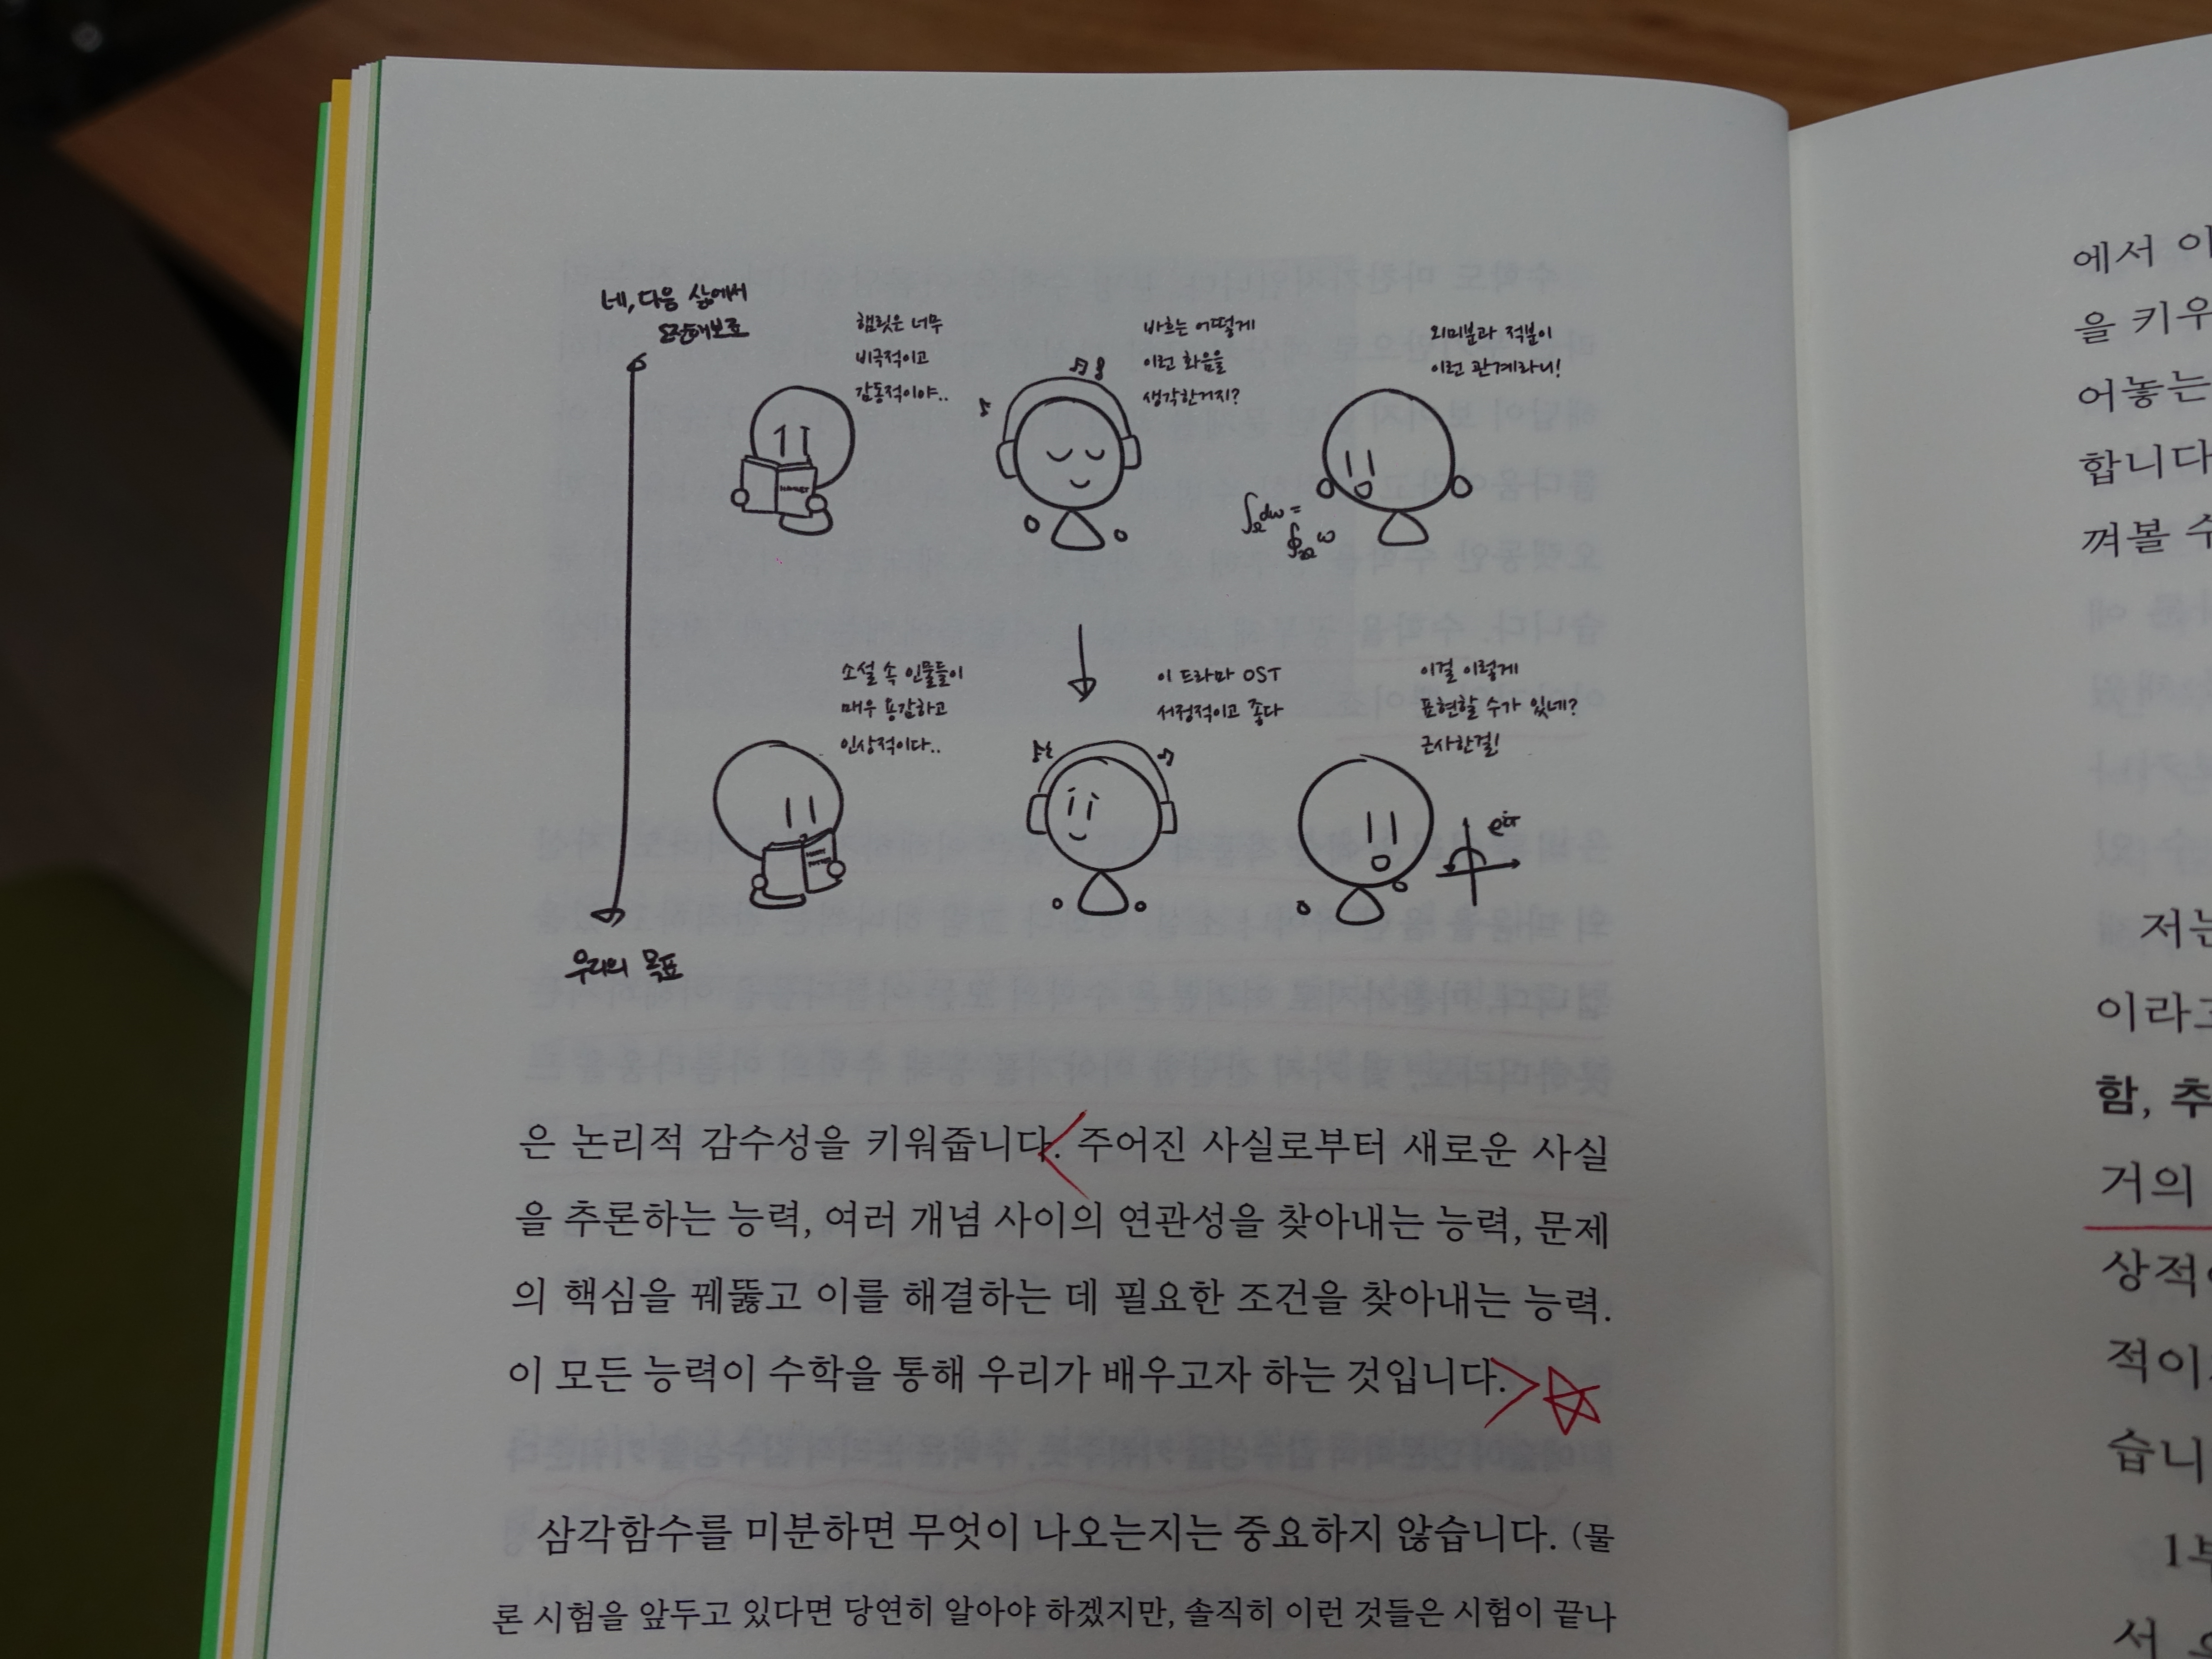 네, 다음 삶에서
도전해보죠
햄릿은 너무
비극적이고
감동적이야..
바흐는 어떻게
이런 화음을
생각한거지?
외미분과 적분이
이런 관계라니!
HAMLET
∫_Ω dω =
∮_∂Ω ω
소설 속 인물들이
매우 용감하고
인상적이다..
이 드라마 OST
서정적이고 좋다
이걸 이렇게
표현할 수가 있네?
근사한걸!
e^iπ
우리의 목표
은 논리적 감수성을 키워줍니다. 주어진 사실로부터 새로운 사실
을 추론하는 능력, 여러 개념 사이의 연관성을 찾아내는 능력, 문제
의 핵심을 꿰뚫고 이를 해결하는 데 필요한 조건을 찾아내는 능력.
이 모든 능력이 수학을 통해 우리가 배우고자 하는 것입니다.
삼각함수를 미분하면 무엇이 나오는지는 중요하지 않습니다. (물
론 시험을 앞두고 있다면 당연히 알아야 하겠지만, 솔직히 이런 것들은 시험이 끝나
에서 이
을 키우
어놓는
합니다
껴볼 수
저는
이라고
함, 추
거의
상적이
적이
습니
1부
서